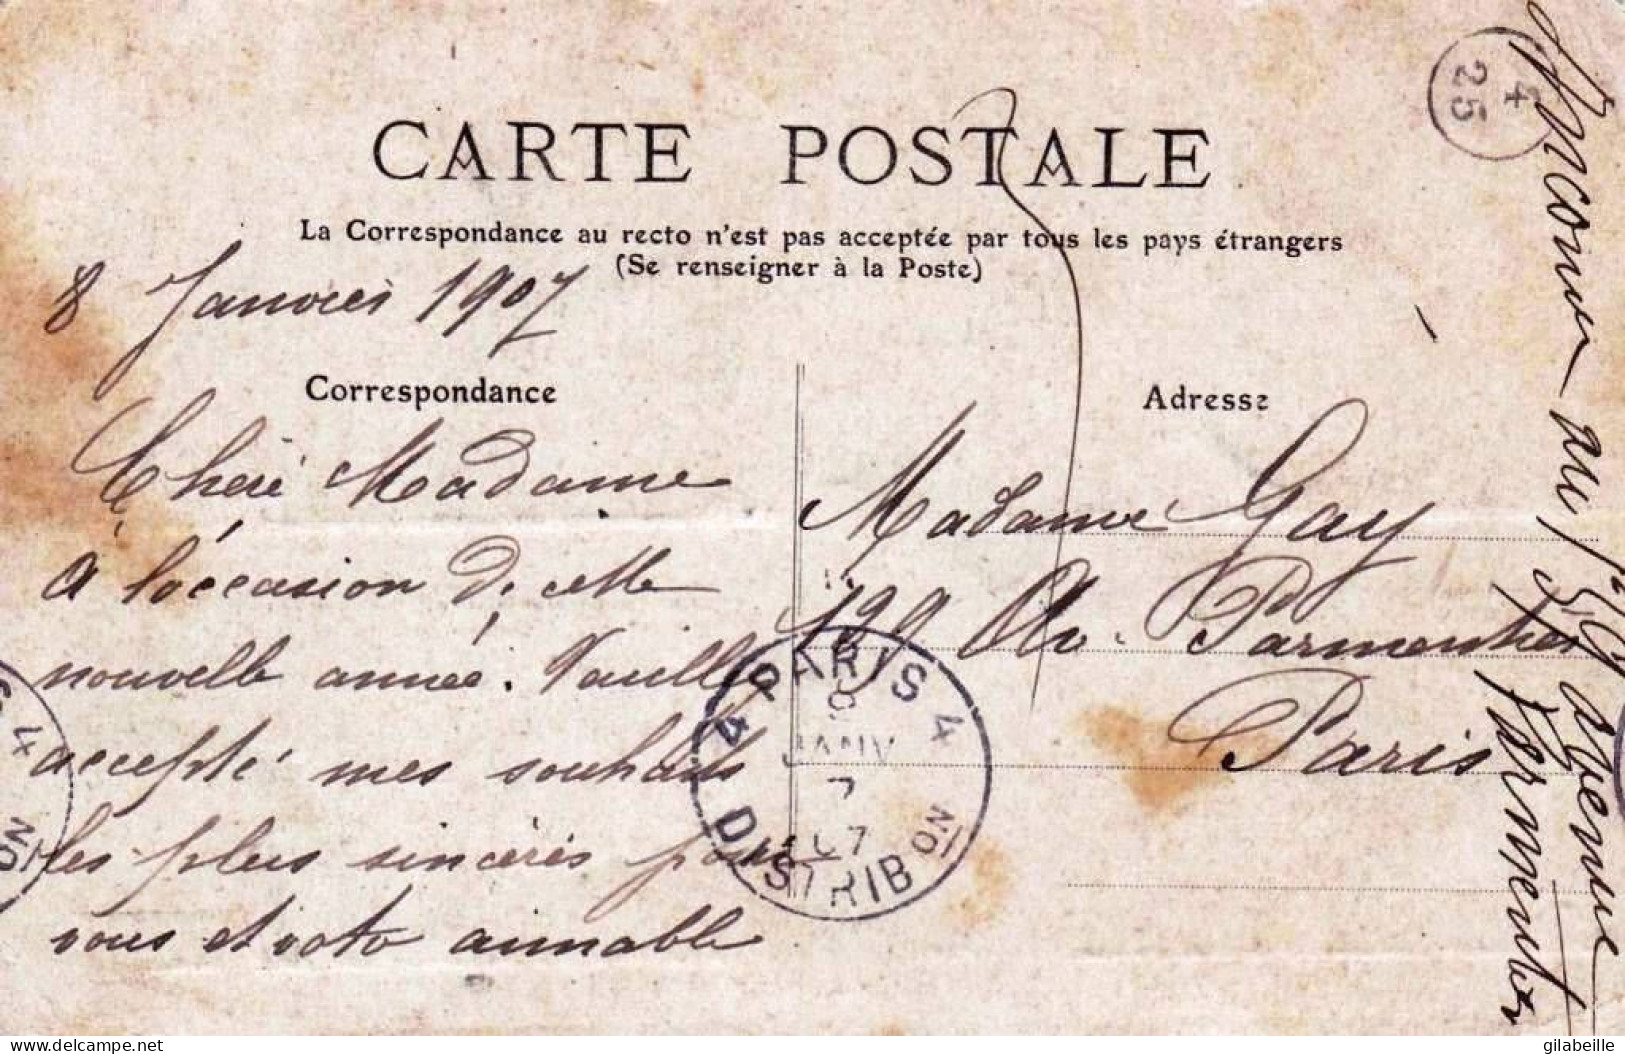 CARTE POSTALE
La Correspondance au recto n'est pas acceptée par tous les pays étrangers
(Se renseigner à la Poste)
8 Janvier 1907
Correspondance
Chere Madame
à l'occasion de cette
nouvelle année. Veuillez
accepté mes souhaits
les plus sincères pour
vous et voto aimable
Adresse
Madame Gay
199 Av. Parmentier
Paris
Inconnu au 199 avenue
Parmentier
4
25
PARIS 4
9
JANV
7
07
DISTRIBON
4
4
ON
delcampe.net
gilabeille